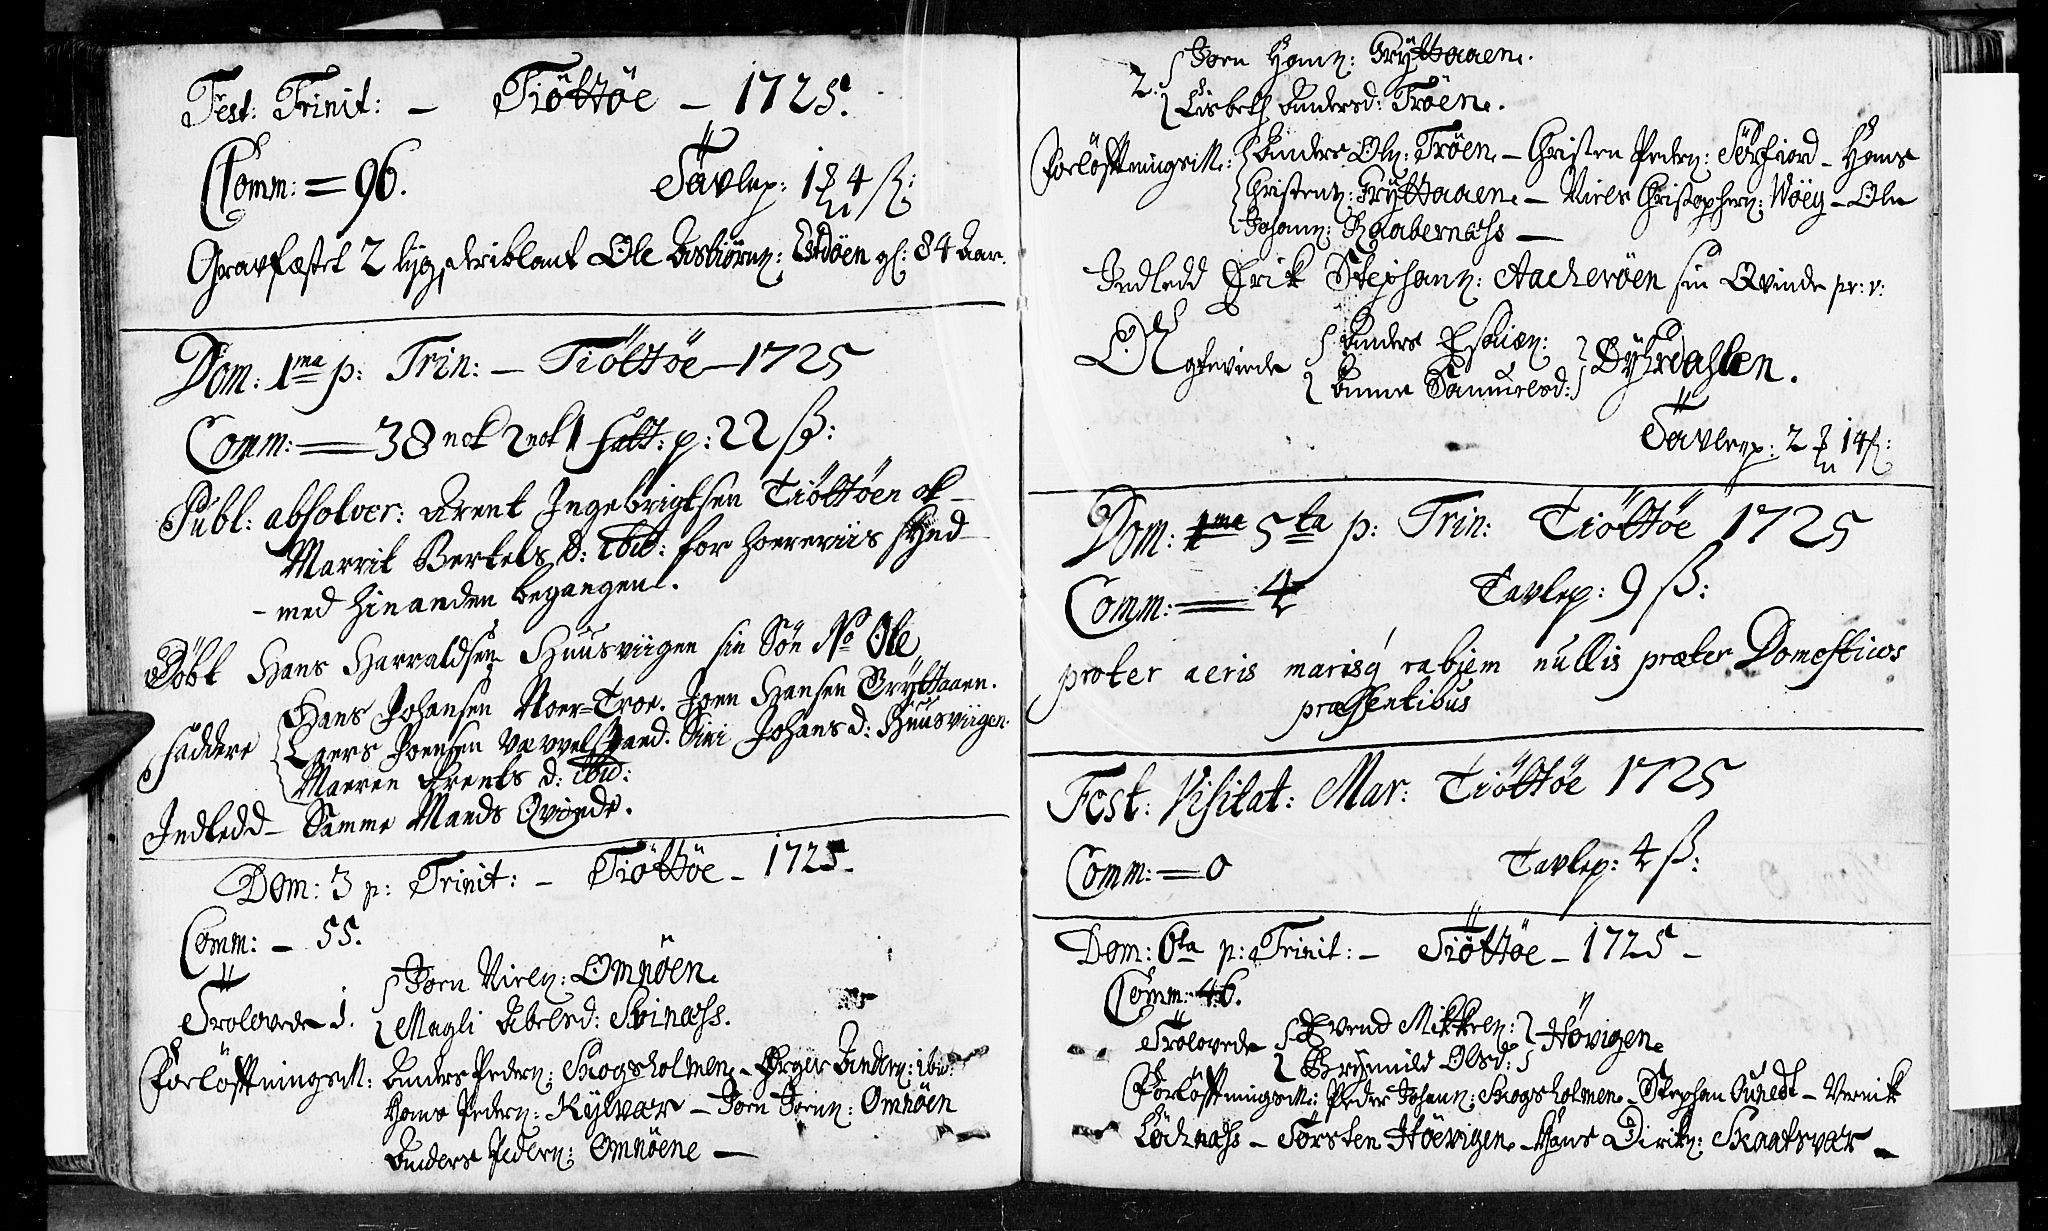 Fest: Trinit: – Tiöttöe – 1725.
Comm: = 96. Tavlep: 1 4 ß:
Gravfæstet 2 lyg, deriblant Ole Asbiørnß: Østdöen gl: 84 Aar.
Dom: 1ma p: Trin: – Tiöttöe – 1725
Comm: = 38 nok 2 nok 1 p: 22 ß:
Publ: absolver: Arent Ingebrigtsen Tiöttöen ok
Marrit Bertels d: ibid: for hoereriis synd
– med hinanden begangen.
Döbt Hans Harraldsen Huusviigen sin Sön No Ole
faddere Hans Johansen Noer=Troe. Joen Hansen Gryttaaen.
Laers Joensen Siri Johans d: Huusviigen.
Maeren Arents d: ibid:
Indledd – Samme Mands Qvinde.
Dom: 3 p: Trinit: – Tiöttöe – 1725.
Comm: – 55.
Trolovede 1. Joen Nielß: Omnöen
Magli Abelsd: Svinæss.
Forlöftningsm: Anders Pederß: Skogsholmen – Anderß: ibid:
Hans Pederß: Rylvær – Joen Joenß: Omnöen
Anders Pederß: Omnöene –
2. Joen Hanß: Gryttaaen.
Lisbeth Andersd: Tröen.
Forlöftningsm: Anders Olß: Tröen – Christen Pederß: Sörfiord – Hans
Christenß: Gryttaaen – Niels Christopherß: Wöeg – Ole
Johanß: Raabernæss –
Indledd Erik Stephanß: Aackeröen sin Qvinde
Ægteviede Anders
Anne Samuelsd: Dyrdahlen.
Tavlep: 2 14 ß:
Dom: 1ma 5ta p: Trin: Tiöttöe 1725
Comm: = 4 Tavlep: 9 ß:
propter aeris marisq rabiem nullis præter Domesticos
præsentibus
Fest: Visitat: Mar: Tiöttöe 1725
Comm: = 0 Tavlep: 4 ß:
Dom: 6ta p: Trinit: – Tiöttöe – 1725 –
Comm: 46.
Trolovede Evend Mikkelß:
Brynnild Olsd: Hövigen
Forlöftningsm: Peder Johanß: Skogsholmen – Stephan – Vernik
Löcknæss – Torsten Höevigen – Hans Dirikß: Skaatsvær –